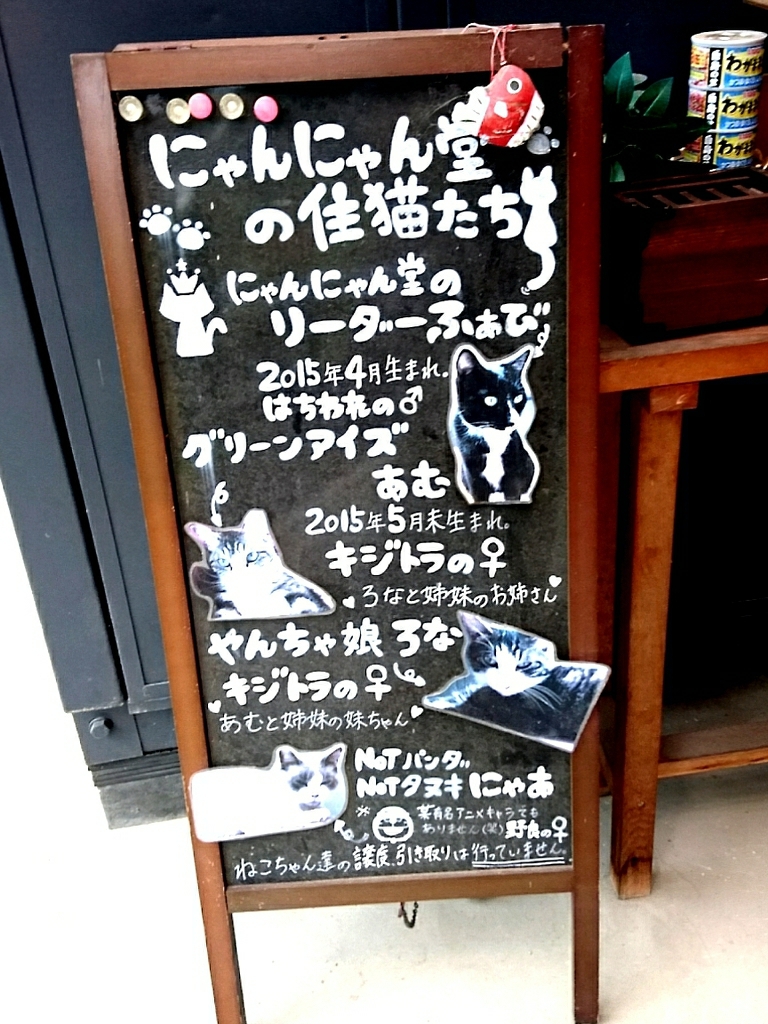 にゃんにゃん堂
の住猫たち
にゃんにゃん堂の
リーダーふぁび
2015年4月生まれ。
はちわれの♂
グリーンアイズ
あむ
2015年5月末生まれ。
キジトラの♀
ろなと姉妹のお姉さん
やんちゃ娘 ろな
キジトラの♀
あむと姉妹の妹ちゃん
NOTパンダ
NOTタヌキ にゃあ
※某有名アニメキャラでも
ありません(笑) 野良の♀
ねこちゃん達の譲渡、引き取りは行っていません。
わが
わが
わが